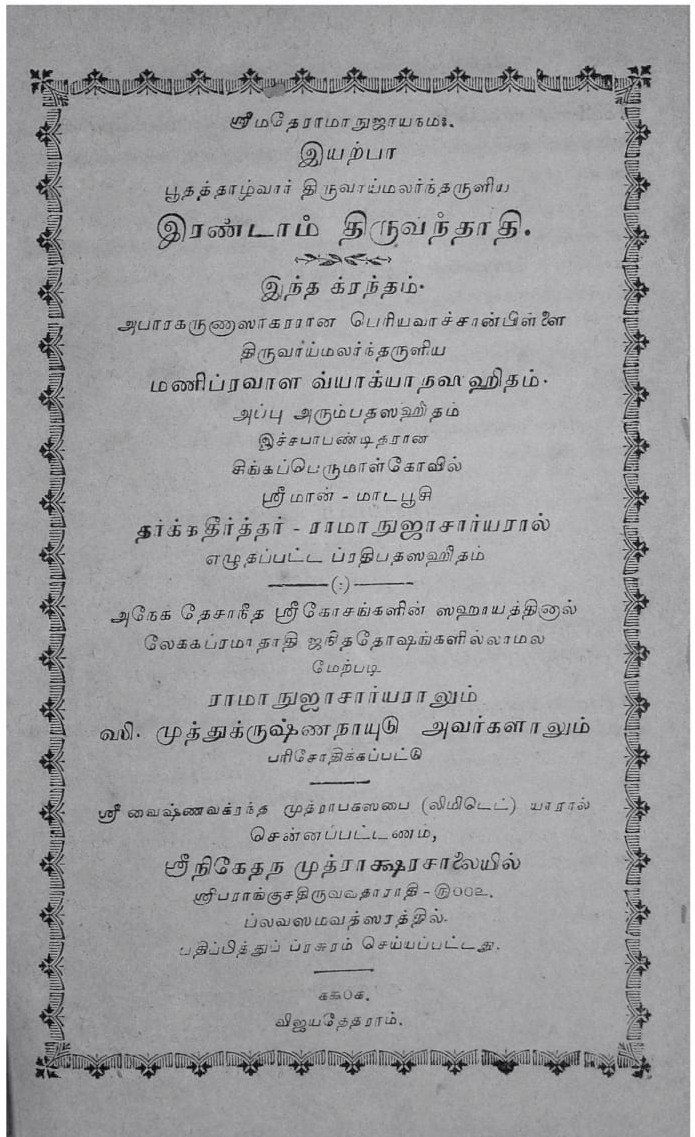 ஸ்ரீமதேராமாநுஜாயநம:.
இயற்பா
பூதத்தாழ்வார் திருவாய்மலர்ந்தருளிய
இரண்டாம் திருவந்தாதி.
இந்த க்ரந்தம்.
அபாரகருணாஸாகரரான பெரியவாச்சான்பிள்ளை
திருவாய்மலர்ந்தருளிய
மணிப்ரவாள வ்யாக்யாநஸஹிதம்.
அப்பு அரும்பதஸஹிதம்
இச்சபாபண்டிதரான
சிங்கப்பெருமாள்கோவில்
ஸ்ரீமான் - மாடபூசி
தர்க்கதீர்த்தர் - ராமாநுஜாசார்யரால்
எழுதப்பட்ட ப்ரதிபதஸஹிதம்
(:)
அநேக தேசாநீத ஸ்ரீகோசங்களின் ஸஹாயத்தினால்
லேககப்ரமாதாதி ஜநிததோஷங்களில்லாமல
மேற்படி
ராமாநுஜாசார்யராலும்
முத்துக்ருஷ்ணநாயுடு அவர்களாலும்
பரிசோதிக்கப்பட்டு
ஸ்ரீ வைஷ்ணவக்ரந்த முத்ராபகஸபை (லிமிடெட்) யாரால்
சென்னப்பட்டணம்,
ஸ்ரீநிகேதந முத்ராக்ஷரசாலையில்
ஸ்ரீபராங்குசதிருவவதாராதி -
ப்லவஸமவத்ஸரத்தில்.
பதிப்பித்துப் ப்ரசுரம் செய்யப்பட்டது.
விஜயதேதராம்.